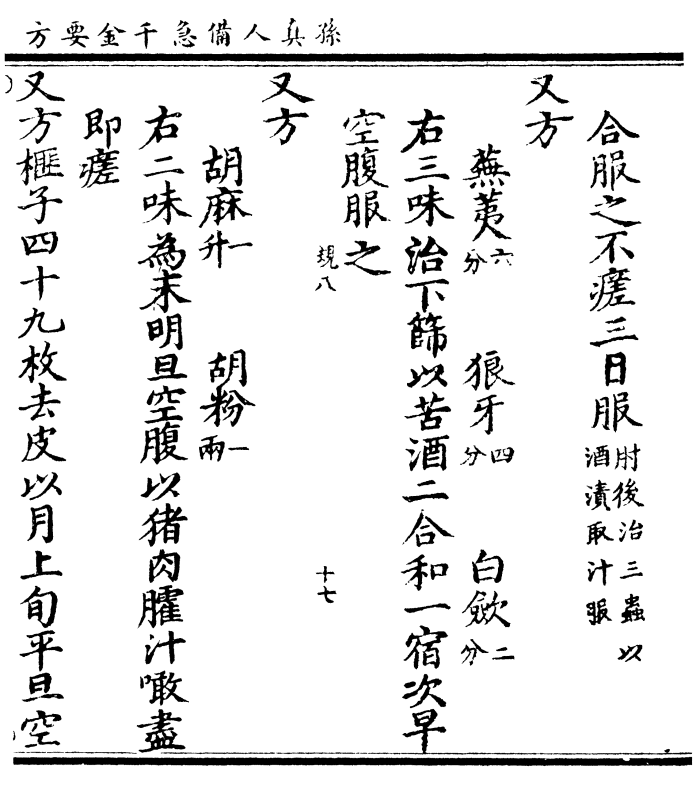 孫真人備急千金要方
合服之不瘥三日服肘後治三蟲以酒漬取汁服
又方
蕪荑六分 狼牙四分 白歛二分
右三味治下篩以苦酒二合和一宿次早
空腹服之
規八 十七
又方
胡麻一升 胡粉一兩
右二味為末明旦空腹以猪肉臛汁噉盡
即瘥
又方榧子四十九枚去皮以月上旬平旦空